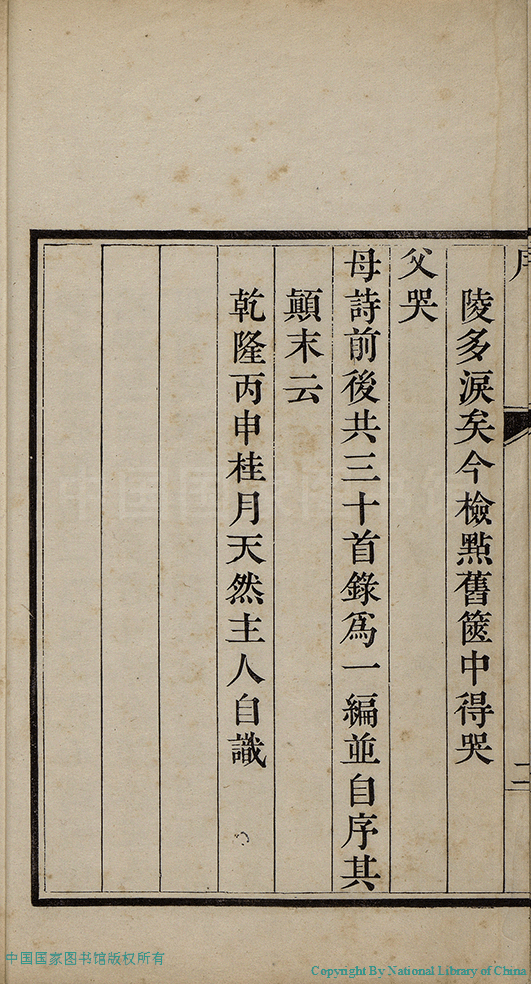 陵多淚矣今檢點舊篋中得哭
父哭
母詩前後共三十首錄爲一編並自序其
顚末云
乾隆丙申桂月天然主人自識
二
中国国家图书馆版权所有
Copyright By National Library of China